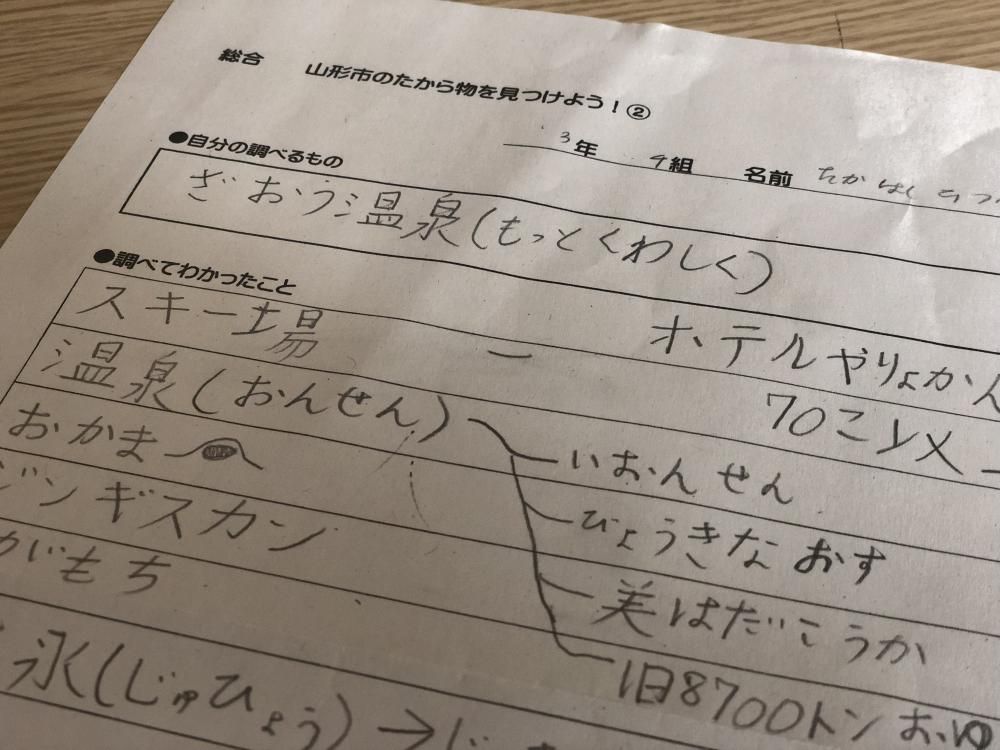 総合 山形市のたから物を見つけよう!②
3年 4組 名前 たかはし
●自分の調べるもの
ざおう温泉(もっとくわしく)
●調べてわかったこと
スキー場 ー ホテルやりょかん
温泉(おんせん) 70こ以
いおんせん
おかま
びょうきなおす
ジンギスカン
美はだこうか
がもち
1日8700トン おゆ
氷(じゅひょう)→